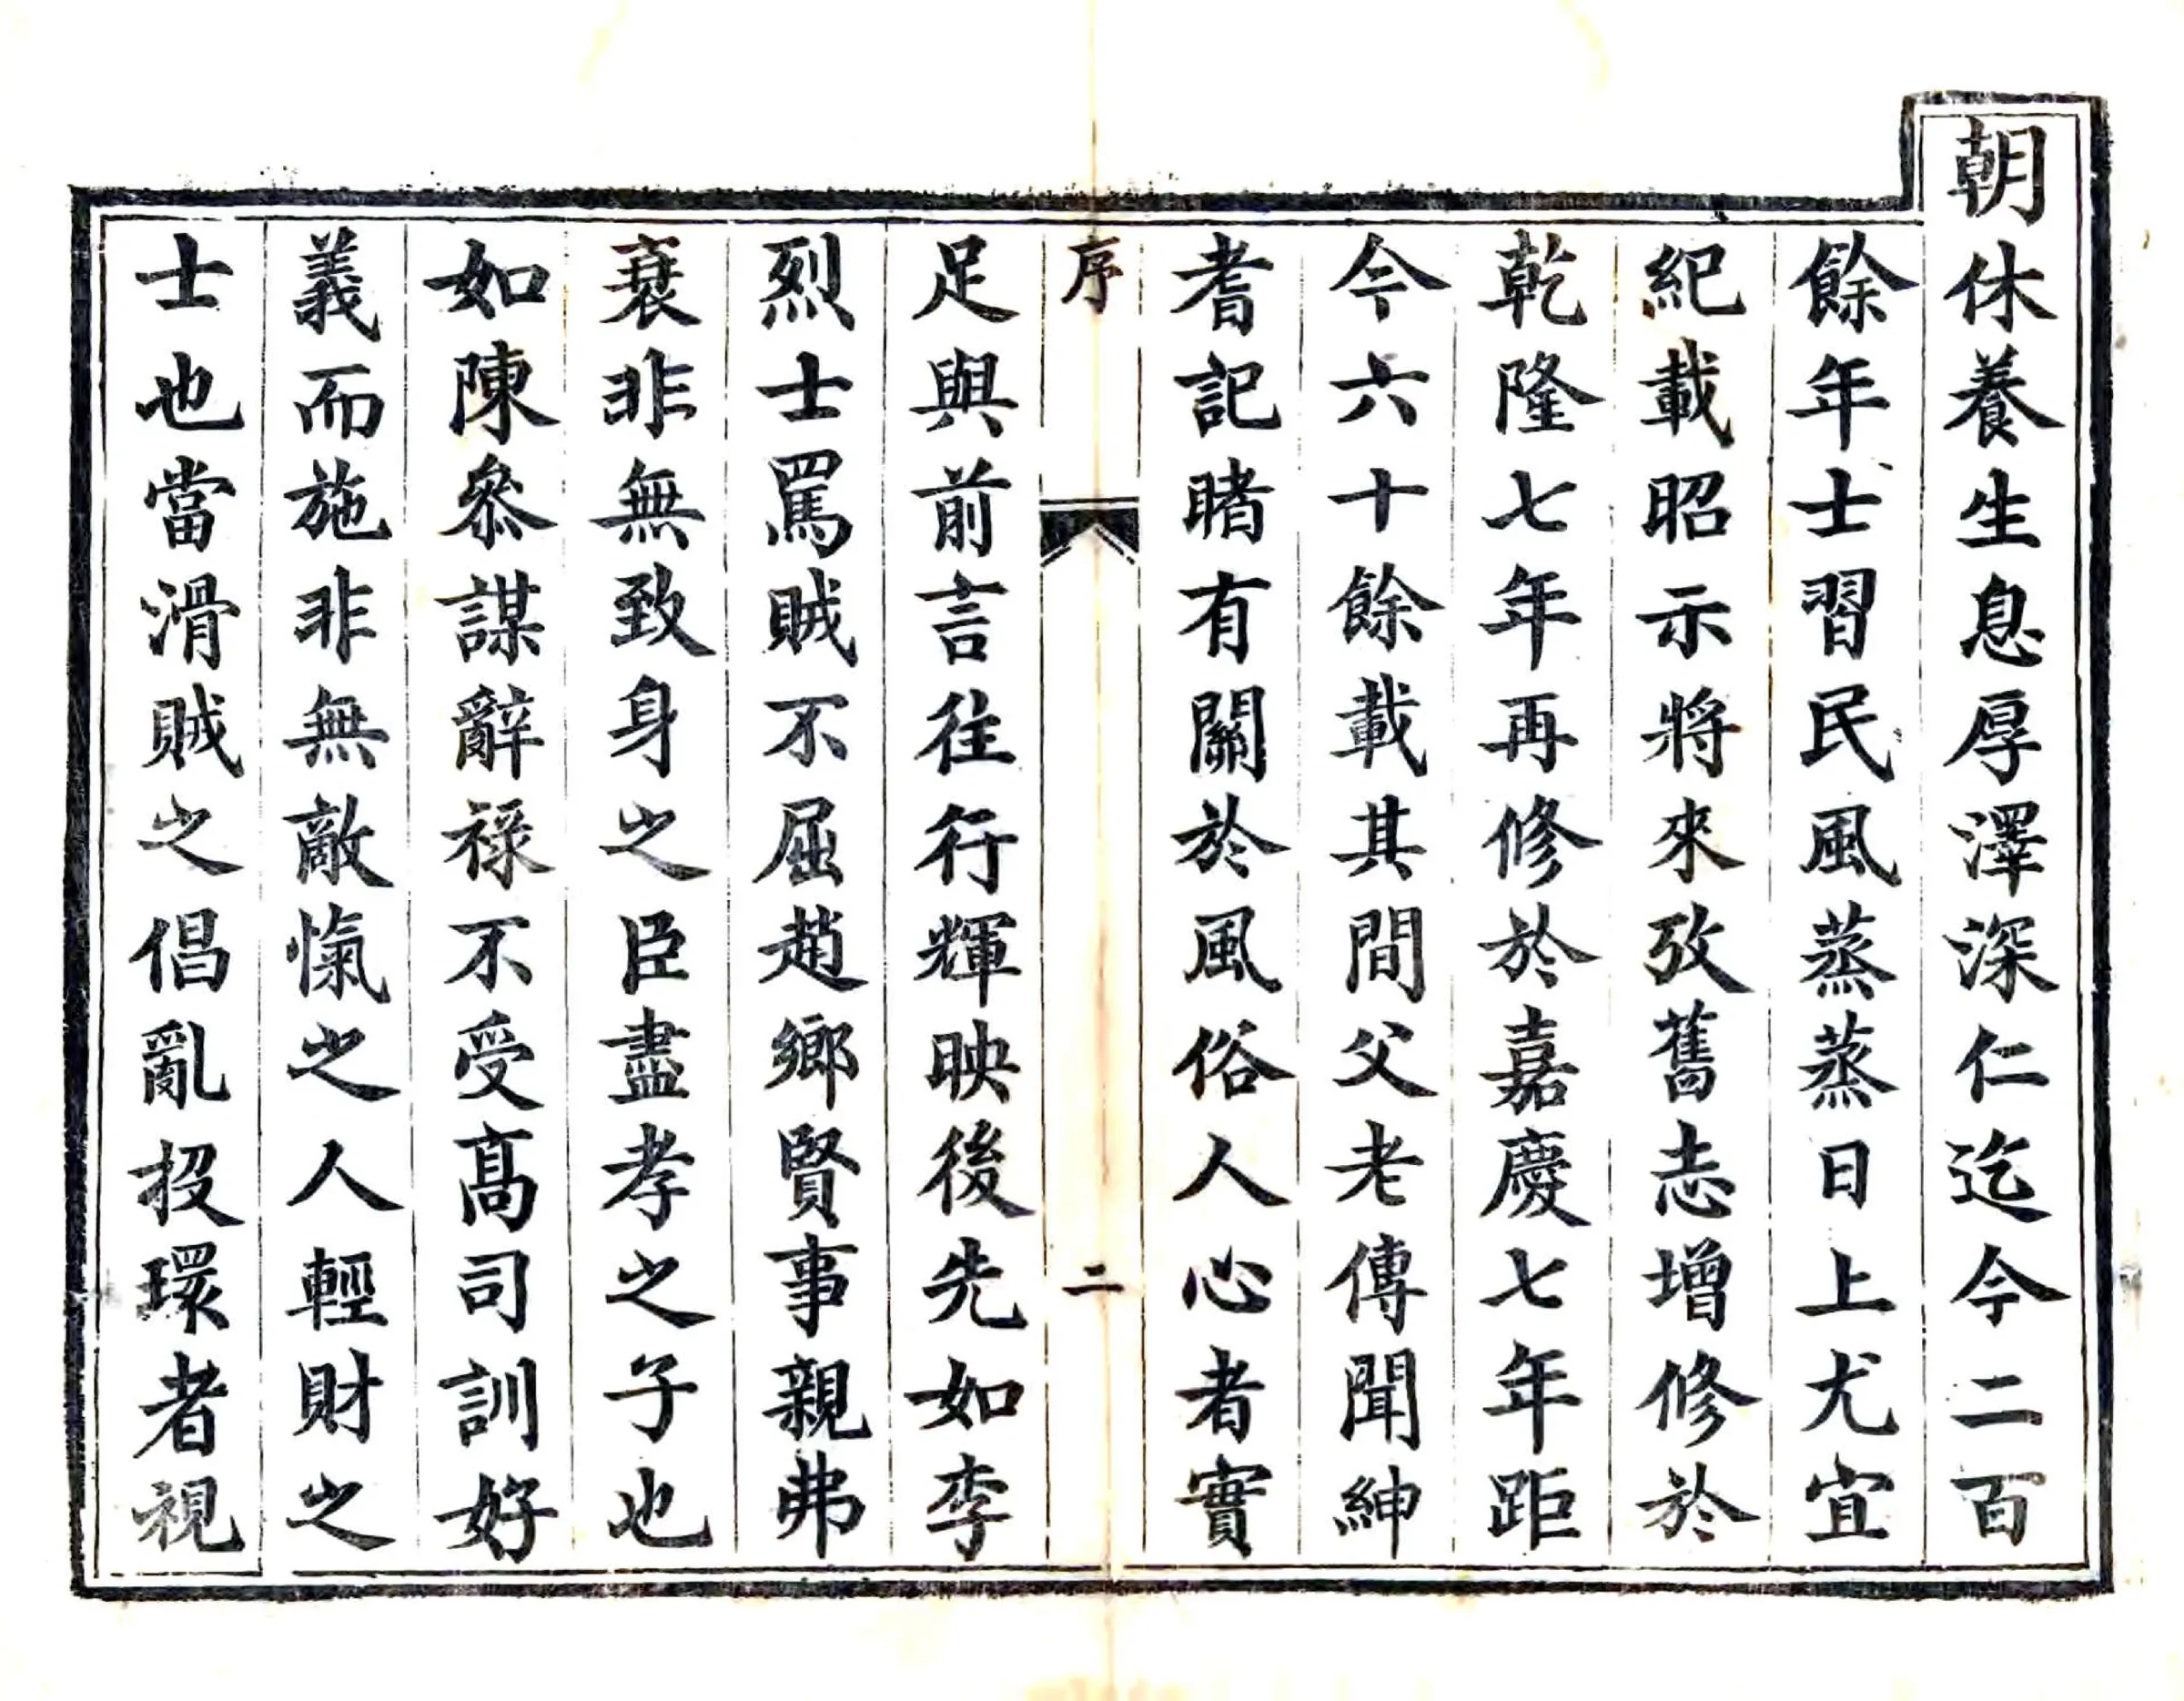 朝休養生息厚澤深仁迄今二百
餘年士習民風蒸蒸日上尤宜
紀載昭示將來攷舊志增修於
乾隆七年再修於嘉慶七年距
今六十餘載其間父老傳聞紳
耆記睹有關於風俗人心者實
序
二
足與前言往行輝映後先如李
烈士罵賊不屈趙鄉賢事親弗
衰非無致身之臣盡孝之子也
如陳叅謀辭祿不受髙司訓好
義而施非無敵愾之人輕財之
士也當滑賊之倡亂投環者視